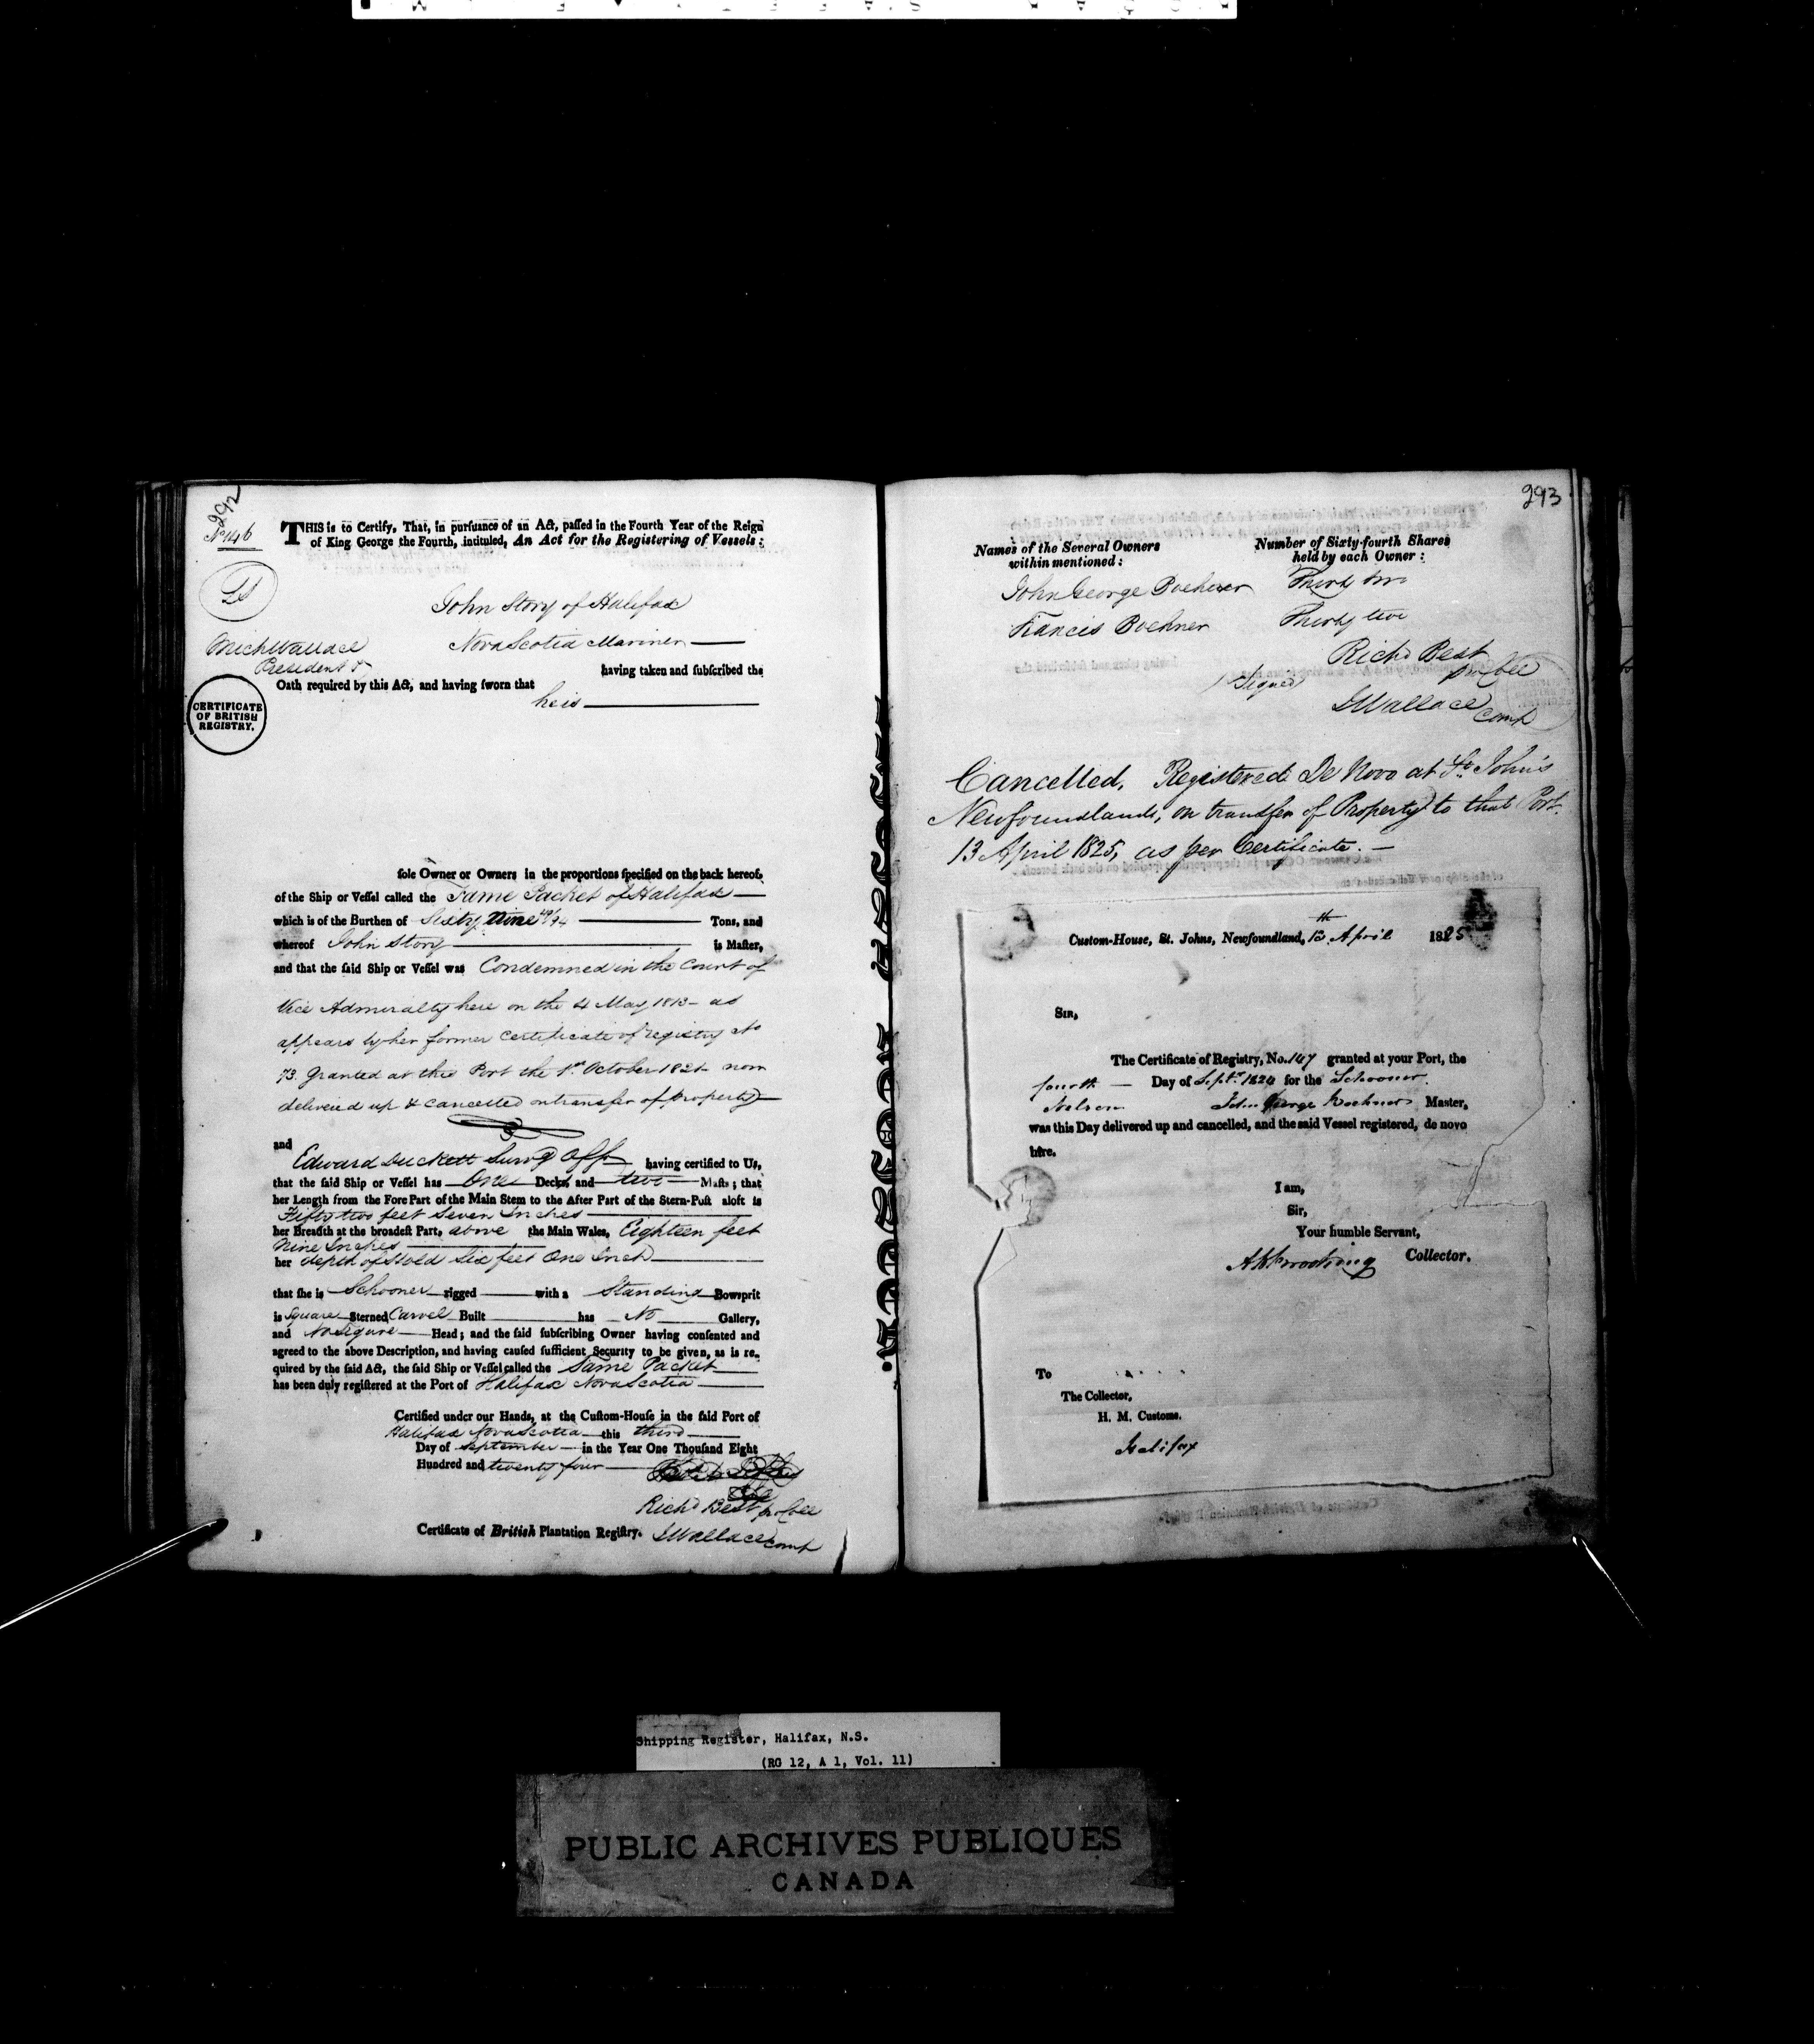 292
No 146
THIS is to Certify, That, in pursuance of an Act, passed in the Fourth Year of the Reign
of King George the Fourth, intituled, An Act for the Registering of Vessels;
John Story of Halifax
Mich Wallace
Nova Scotia Mariner
President
having taken and subscribed the
Oath required by this Act, and having sworn that
he is
CERTIFICATE
OF BRITISH
REGISTRY.
sole Owner or Owners in the proportions specified on the back hereof,
of the Ship or Vessel called the Fame Packet of Halifax
which is of the Burthen of Sixty Nine 49/94 Tons, and
whereof John Story is Master,
and that the said Ship or Vessel was Condemned in the Court of
Vice Admiralty here on the 4 May 1813 as
appears by her former Certificate of registry No
73. Granted at this Port the 1st October 1821 now
delivered up & cancelled on transfer of property
and
Edward Duckett Survg Offr having certified to Us,
that the said Ship or Vessel has One Deck, and two Masts; that
her Length from the Fore Part of the Main Stem to the After Part of the Stern-Post aloft is
Fifty two feet Seven Inches
her Breadth at the broadest Part, above the Main Wales, Eighteen feet
Nine Inches
her depth of Hold Six feet One Inch
that she is Schooner rigged with a Standing Bowsprit
is Square Sterned Carvel Built has No Gallery,
and No figure Head; and the said subscribing Owner having consented and
agreed to the above Description, and having caused sufficient Security to be given, as is re-
quired by the said Act, the said Ship or Vessel called the Fame Packet
has been duly registered at the Port of Halifax Nova Scotia
Certified under our Hands, at the Custom-House in the said Port of
Halifax Nova Scotia this third
Day of September in the Year One Thousand Eight
Hundred and twenty four
Richd Best pro Coll
Certificate of British Plantation Registry. Wallace Compt
293
Names of the Several Owners
within mentioned:
Number of Sixty-fourth Shares
held by each Owner:
John George Boehner Thirty two
Francis Boehner Thirty two
Richd Best
pro Coll
Signed
Wallace
Compt
Cancelled, Registered De Novo at St. John's
Newfoundland, on transfer of Property to that Port.
13 April 1825, as per Certificate.
Custom-House, St. Johns, Newfoundland, 13th April 1825
SIR,
The Certificate of Registry, No. 147 granted at your Port, the
fourth Day of Sept. 1824 for the Schooner
Nelson John George Boehner Master,
was this Day delivered up and cancelled, and the said Vessel registered, de novo
here.
I am,
Sir,
Your humble Servant,
Collector.
To
The Collector,
H. M. Customs.
Halifax
Shipping Register, Halifax, N.S.
(RG 12, A 1, Vol. 11)
PUBLIC ARCHIVES PUBLIQUES
CANADA